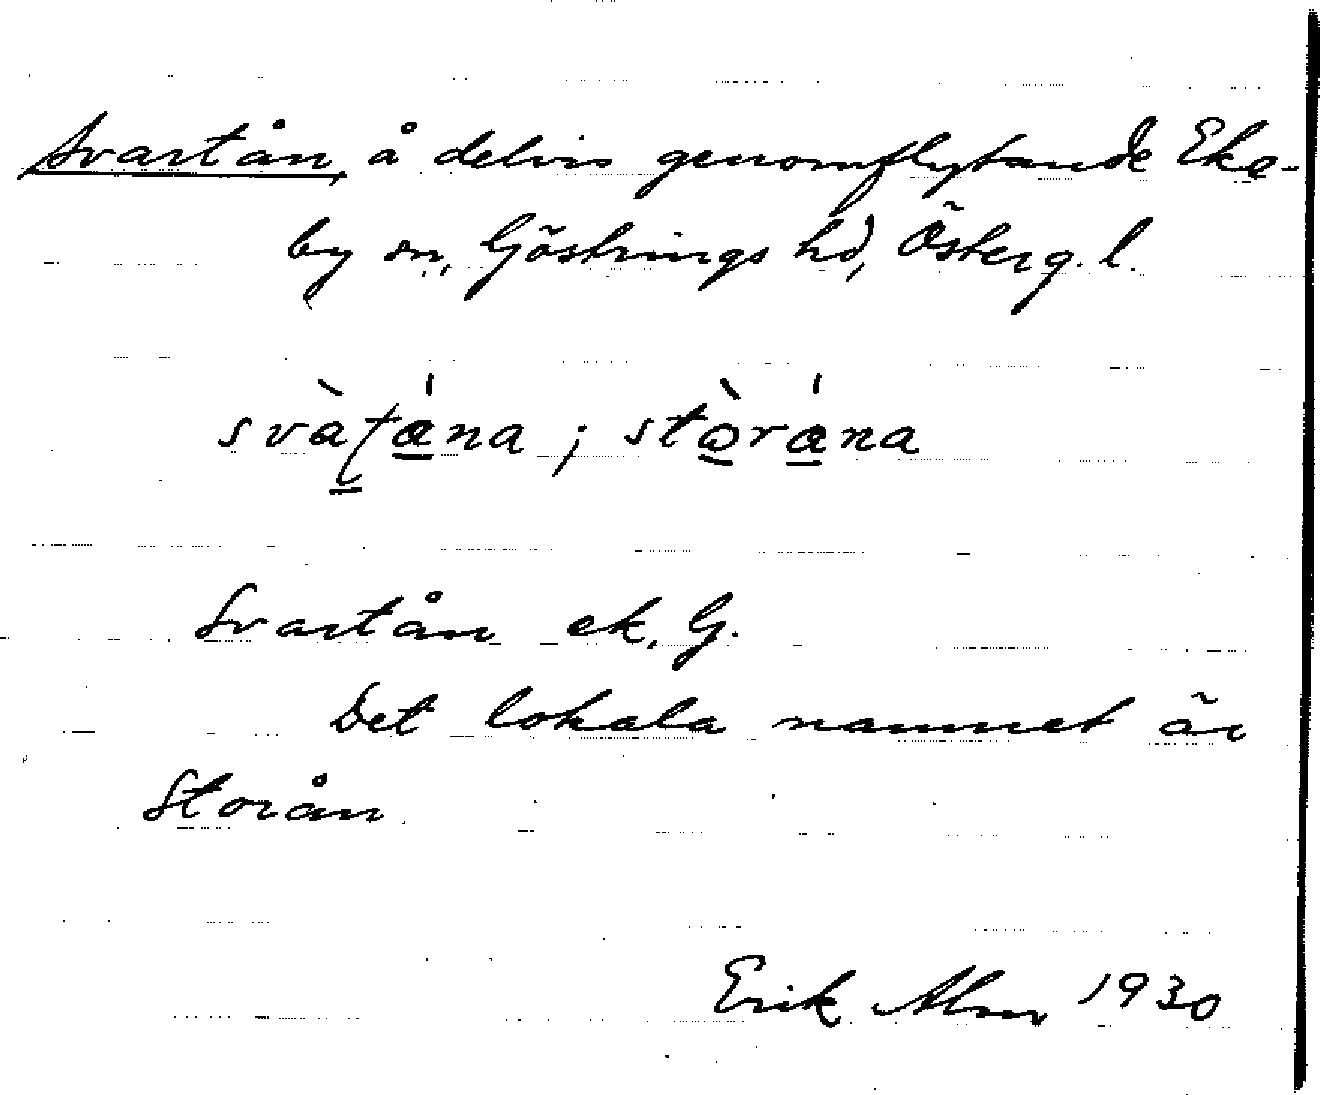 Svartån, å delvis genomflytande Eke-
by sn, Göstrings hd, Österg. l.
svàtǻna; stòrǻna
Svartån ek. G.
Det lokala namnet är
Storån
Erik Alm 1930